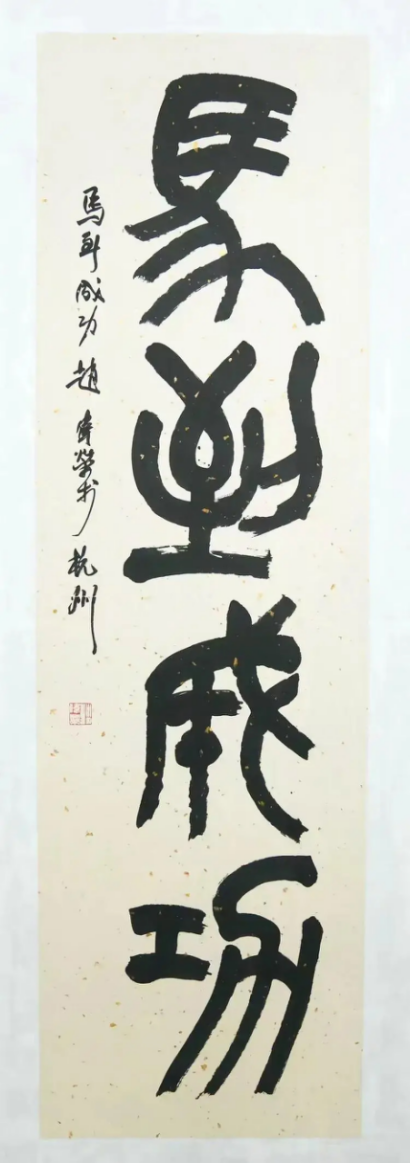 馬到成功
馬到成功 趙榮於杭州